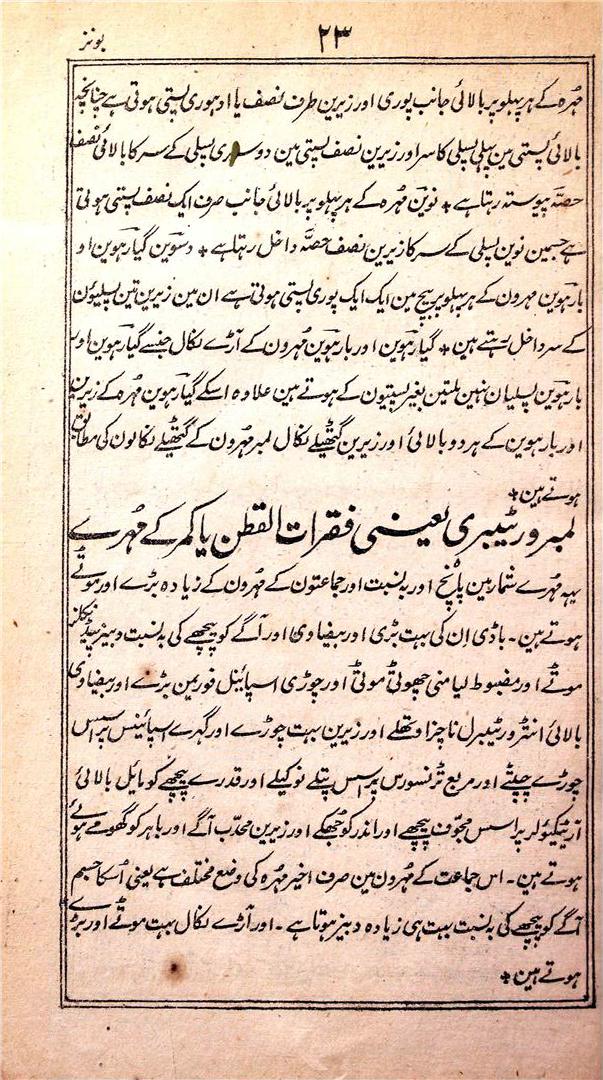 ۲۳
بونز
مہُرہ کے ہر پہلو پر بالائی جانب پوری اور زیرین طرف نصف یا ادہوری پستی ہوتی ہے چنانچہ
بالائی پستی مین پہلی پسلی کا سر اور زیرین نصف پستی مین دوسری پسلی کے سر کا بالائی نصف
حصّہ پیوستہ رہتا ہے + نوین مہُرہ کے ہر پہلو پر بالائی جانب صرف ایک نصف پستی ہوتی
ہے جسمین نوین پسلی کے سر کا زیرین نصف حصّہ داخل رہتا ہے + دسوین گیارہوین او
بارہوین مہرون کے ہر پہلو پر بیچ مین ایک ایک پوری پستی ہوتی ہے ان مین زیرین تین پسلیون
کے سر داخل رہتے ہین + گیارہوین اور بارہوین مہُرون کے آڑے نکال جنسے گیارہوین اور
بارہوین پسلیان نہین ملتین بغیر پستیون کے ہوتے ہین علاوہ اسکے گیارہوین مہرہ کے زیرین
اور بارہوین کے ہر دو بالائی اور زیرین گٹھیلے نکال لمبر مہرون کے گٹھیلے نکالون کی مطابق
ہوتے ہین +
لمبر ورٹیبری یعینی فقرات القطن یا کمر کے مہُرے
یہہ مہُرے شمار مین پانچ اور بہ نسبت اور جماعتون کے مہرون کے زیادہ بڑے اور ہوتے
ہوتے ہین ۔ باڈی اِن کی بہت بڑی اور بیضاوی اور آگے کو پیچھے کی بہ نسبت دبیز پیڈنکلز
موٹے اور مضبوط لیامنی چھوٹی موٹی اور چوڑی اسپائینل فوریمن بڑے اور بیضاوی
بالائی انٹرورٹیبرل ناچز اوتھلے اور زیرین بہت چوڑے اور گہرے اسپائینس پراسس
چوڑے چپٹے اور مربع ٹرنسورس پراسس پتلے نوکیلے اور قدرے پیچھے کو مایل بالائی
آرٹیکیولر پراسس مجوّف پیچھے اور اندر کو جھکے اور زیرین محدّب آگے اور باہر کو گھومے ہوئے
ہوتے ہین ۔ اس جماعت کے مہُرون مین صرف اخیر مہُرہ کی وضع مختلف ہے یعنی اُسکا جسم
آگے کو پیچھے کی بہ نسبت بہت ہی زیادہ دبیز ہوتا ہے ۔ اور آڑے نکال بہت موٹے اور بڑے
ہوتے ہین +